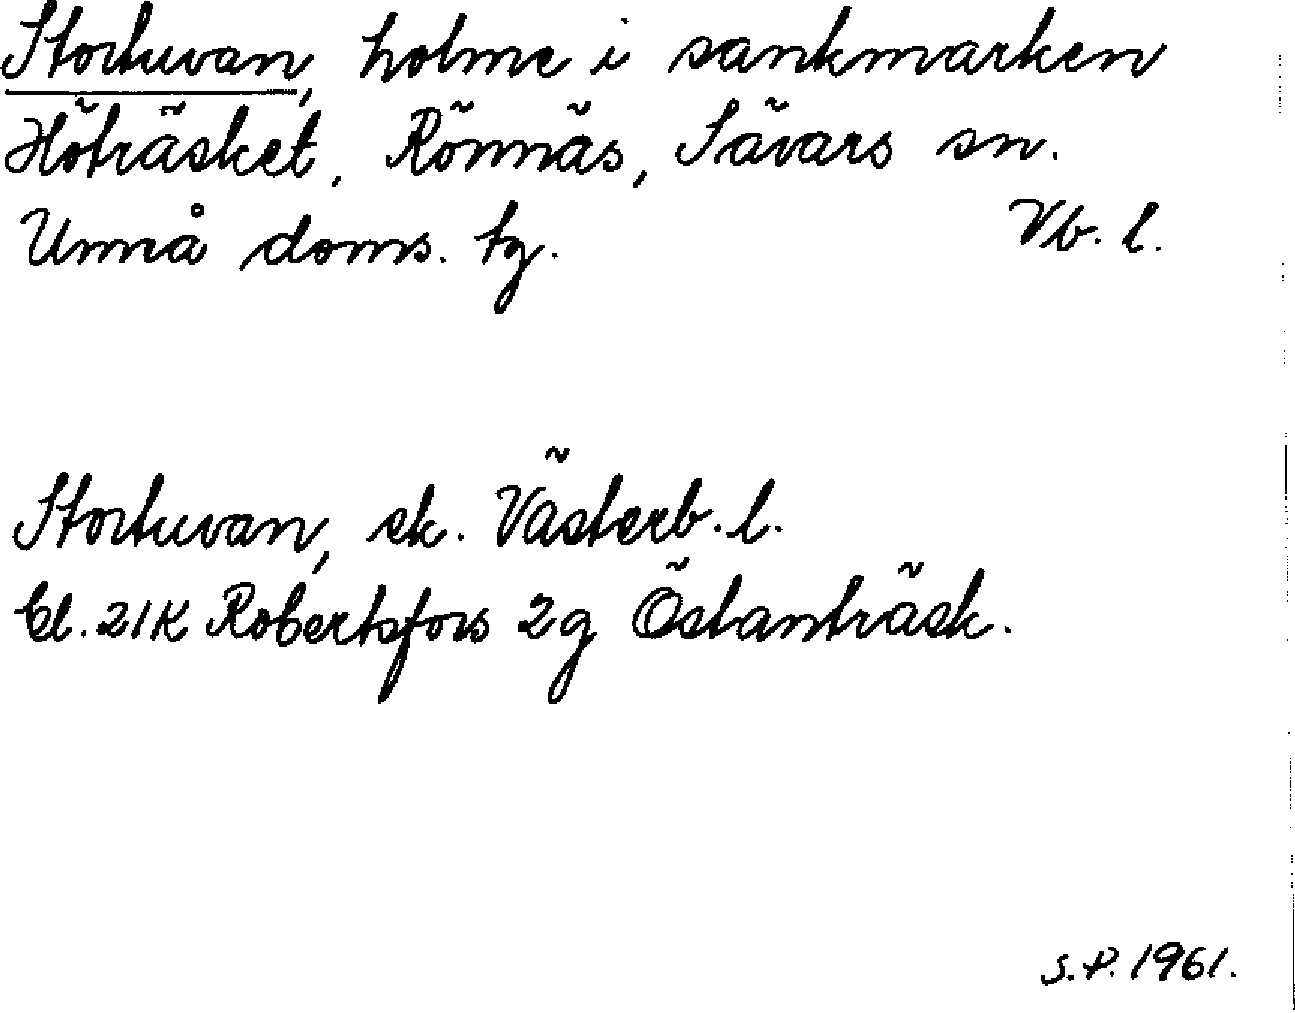 Stortuvan, holme i sankmarken
Höträsket, Rönnäs, Sävars sn.
Umeå doms. tg. Vb. l.
Stortuvan, ek. Västerb. l.
Bl. 21K Robertsfors 2g Östanträsk.
S.P. 1961.